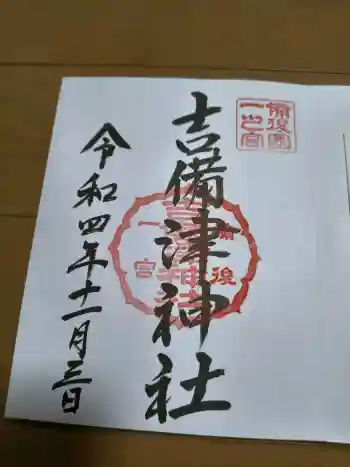 備後國
一之宮
吉備津神社
備後
一宮
令和四年十一月三日